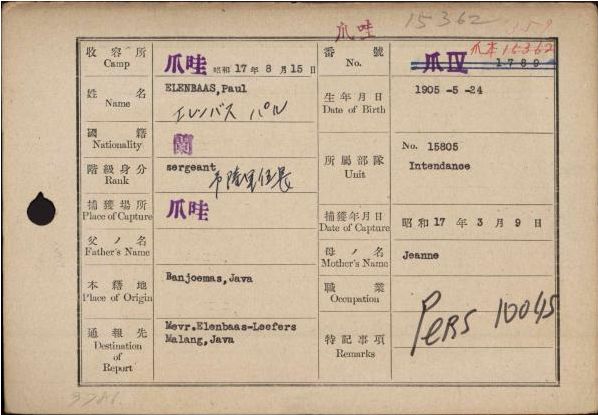 爪哇 15362
爪本 15362
收容所
Camp
爪哇 昭和 17 年 8 月 15 日
番號
No.
爪IV 1789
姓名
Name
ELENBAAS,Paul
エレンバス パル
生年月日
Date of Birth
1905 -5 -24
國籍
Nationality
蘭
所屬部隊
Unit
No. 15805
Intendance
階級身分
Rank
sergeant
捕獲場所
Place of Capture
爪哇
捕獲年月日
Date of Capture
昭和 17 年 3 月 9 日
父ノ名
Father's Name
母ノ名
Mother's Name
Jeanne
本籍地
Place of Origin
Banjoemas,Java
職業
Occupation
通報先
Destination of Report
Mevr.Elenbaas-Leefers
Malang,Java
特記事項
Remarks
PERS 10045